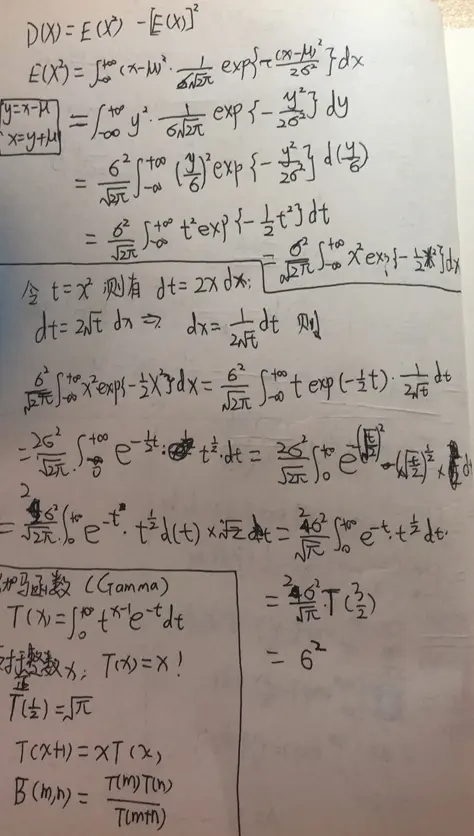 D(X) = E(X²) - [E(X)]²
E(X²) = ∫₋∞^+∞ (x-μ)² · 1/(6√2π) exp{-(x-μ)²/2σ²} dx
y=x-μ
x=y+μ
= ∫₋∞^+∞ y² · 1/(6√2π) exp{-y²/2σ²} dy
= 6²/√2π ∫₋∞^+∞ (y/6)² exp{-y²/2σ²} d(y/6)
= 6²/√2π ∫₋∞^+∞ t² exp{-½t²} dt
= 6²/√2π ∫₋∞^+∞ x² exp{-½x²} dx
令 t=x² 则有 dt=2x dx;
dt=2√t dx ⇒ dx=1/(2√t) dt 则
6²/√2π ∫₋∞^+∞ x² exp{-½x²} dx = 6²/√2π ∫₋∞^+∞ t exp(-½t) · 1/(2√t) dt
= 26²/√2π ∫₀^+∞ e^(-½t) · t^½ · dt = 26²/√2π ∫₀^+∞
= 26²/√2π ∫₀^+∞ e^-t · t^½ d(t) × √2 = 26²/√π ∫₀^+∞ e^-t · t^½ dt.
= 26²/√π · T(3/2)
= 6²
伽马函数 (Gamma)
T(x) = ∫₀^+∞ t^(x-1) e^-t dt
对于整数x, T(x) = x!
T(½) = √π
T(x+1) = xT(x,
B(m,n) = T(m)T(n)/T(m+n)